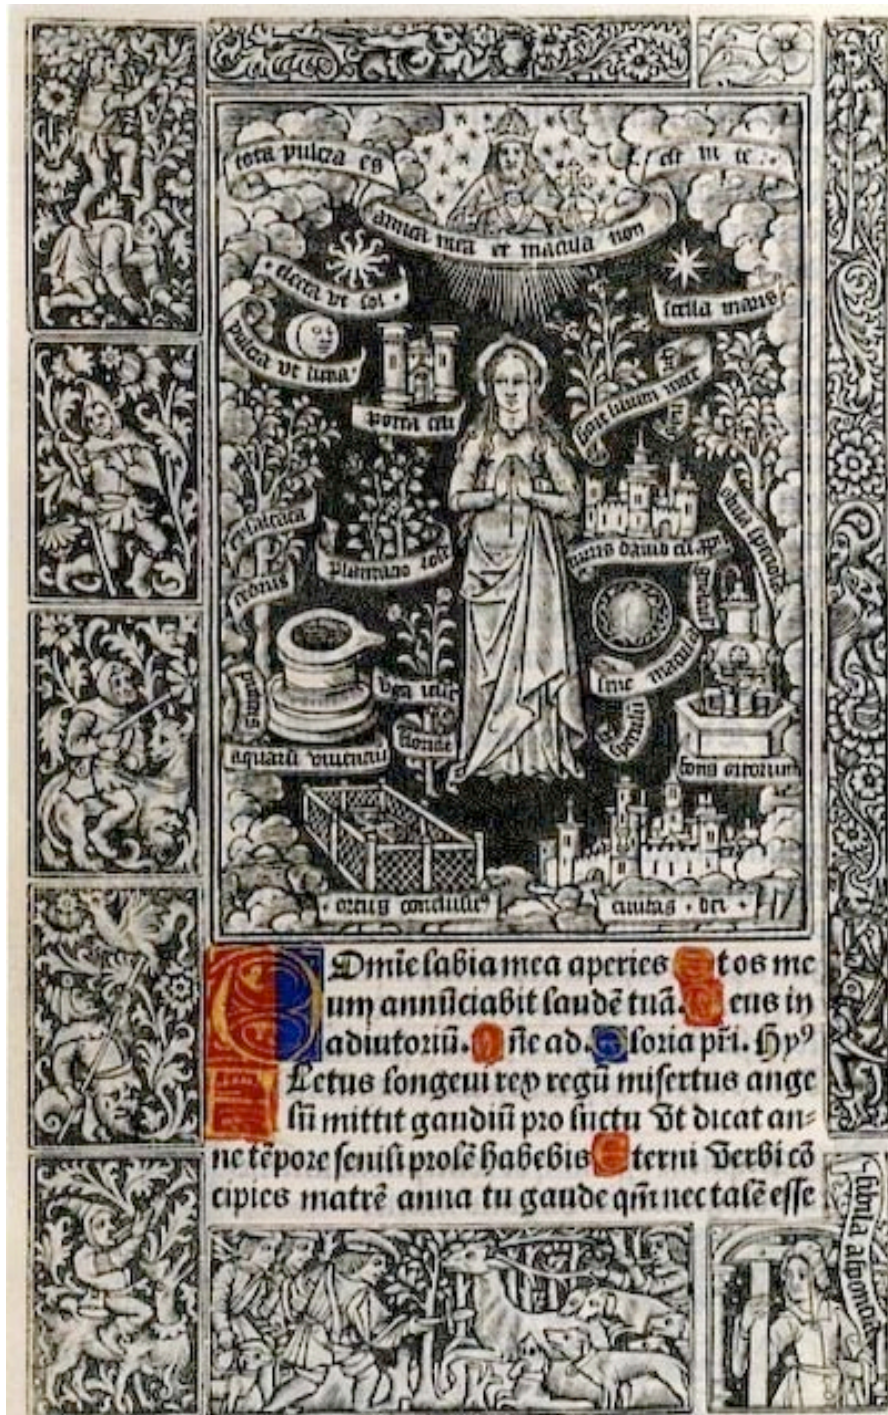 tota pulcra es
est in te
amica mea et macula non
electa vt sol
stella maris
pulcra vt luna
porta celi
exaltata
cedrus
plantatio rose
turris dauid cū
oliua speciosa
puteus
aquarū viuentiū
virga iesse
floruit
sine macula
speculū
fons ortorum
ortus conclusꝰ
ciuitas dei
Dm̄e labia mea aperies Et os me
um annūciabit laudē tuā. Deus in
adiutoriū. Dn̄e ad. Gloria pr̄i. Hyꝰ
Letus longeui rex regū misertus ange
lū mittit gaudiū pro luctu Vt dicat an⸗
ne tēpore senili prolē habebis Eterni Verbi cō
cipies matrē anna tu gaude qm̄ nec talē esse